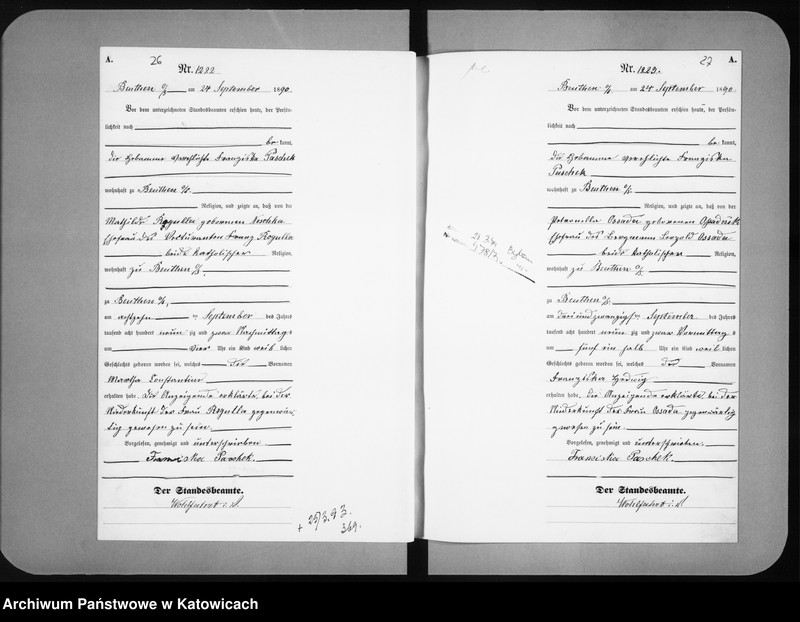 A. 26
Nr. 1222
Beuthen O/S am 24 September 1890
Vor dem unterzeichneten Standesbeamten erschien heute, der Persön-
lichkeit nach
bekannt,
die Hebamme verehelichte Franziska Paschek
wohnhaft zu Beuthen O/S.
Religion, und zeigte an, daß von der
Mathilde Rogulla geborenen
Ehefrau des Franz Rogulla
beide katholischer Religion,
wohnhaft zu Beuthen O/S.
zu Beuthen O/S.
am achtzehn ten September des Jahres
tausend acht hundert neunzig und zwar Nachmittags
um vier Uhr ein Kind weiblichen
Geschlechts geboren worden sei, welches den Vornamen
Martha Constantine
erhalten habe. Die Anzeigende erklärte, bei der
Niederkunft der Frau Rogulla gegenwär-
tig gewesen zu sein.
Vorgelesen, genehmigt und unterschrieben
Franziska Paschek.
Der Standesbeamte.
+ 25/3.93.
369.
27 A.
Nr. 1223.
Beuthen O/S. am 24 September 1890
Vor dem unterzeichneten Standesbeamten erschien heute, der Persön-
lichkeit nach
bekannt,
die Hebamme verehelichte Franziska
Paschek
wohnhaft zu Beuthen O/S.
Religion, und zeigte an, daß von der
Petronella Ossada geborenen
Ehefrau des Bergmann Leopold Ossada
beide katholischer Religion,
wohnhaft zu Beuthen O/S.
zu Beuthen O/S.
am drei und zwanzigsten September des Jahres
tausend acht hundert neunzig und zwar Vormittags
um fünf ein halb Uhr ein Kind weiblichen
Geschlechts geboren worden sei, welches den Vornamen
Franziska Hedwig
erhalten habe. Die Anzeigende erklärte, bei der
Niederkunft der Frau Ossada gegenwärtig
gewesen zu sein
Vorgelesen, genehmigt und unterschrieben.
Franziska Paschek.
Der Standesbeamte.
Archiwum Państwowe w Katowicach